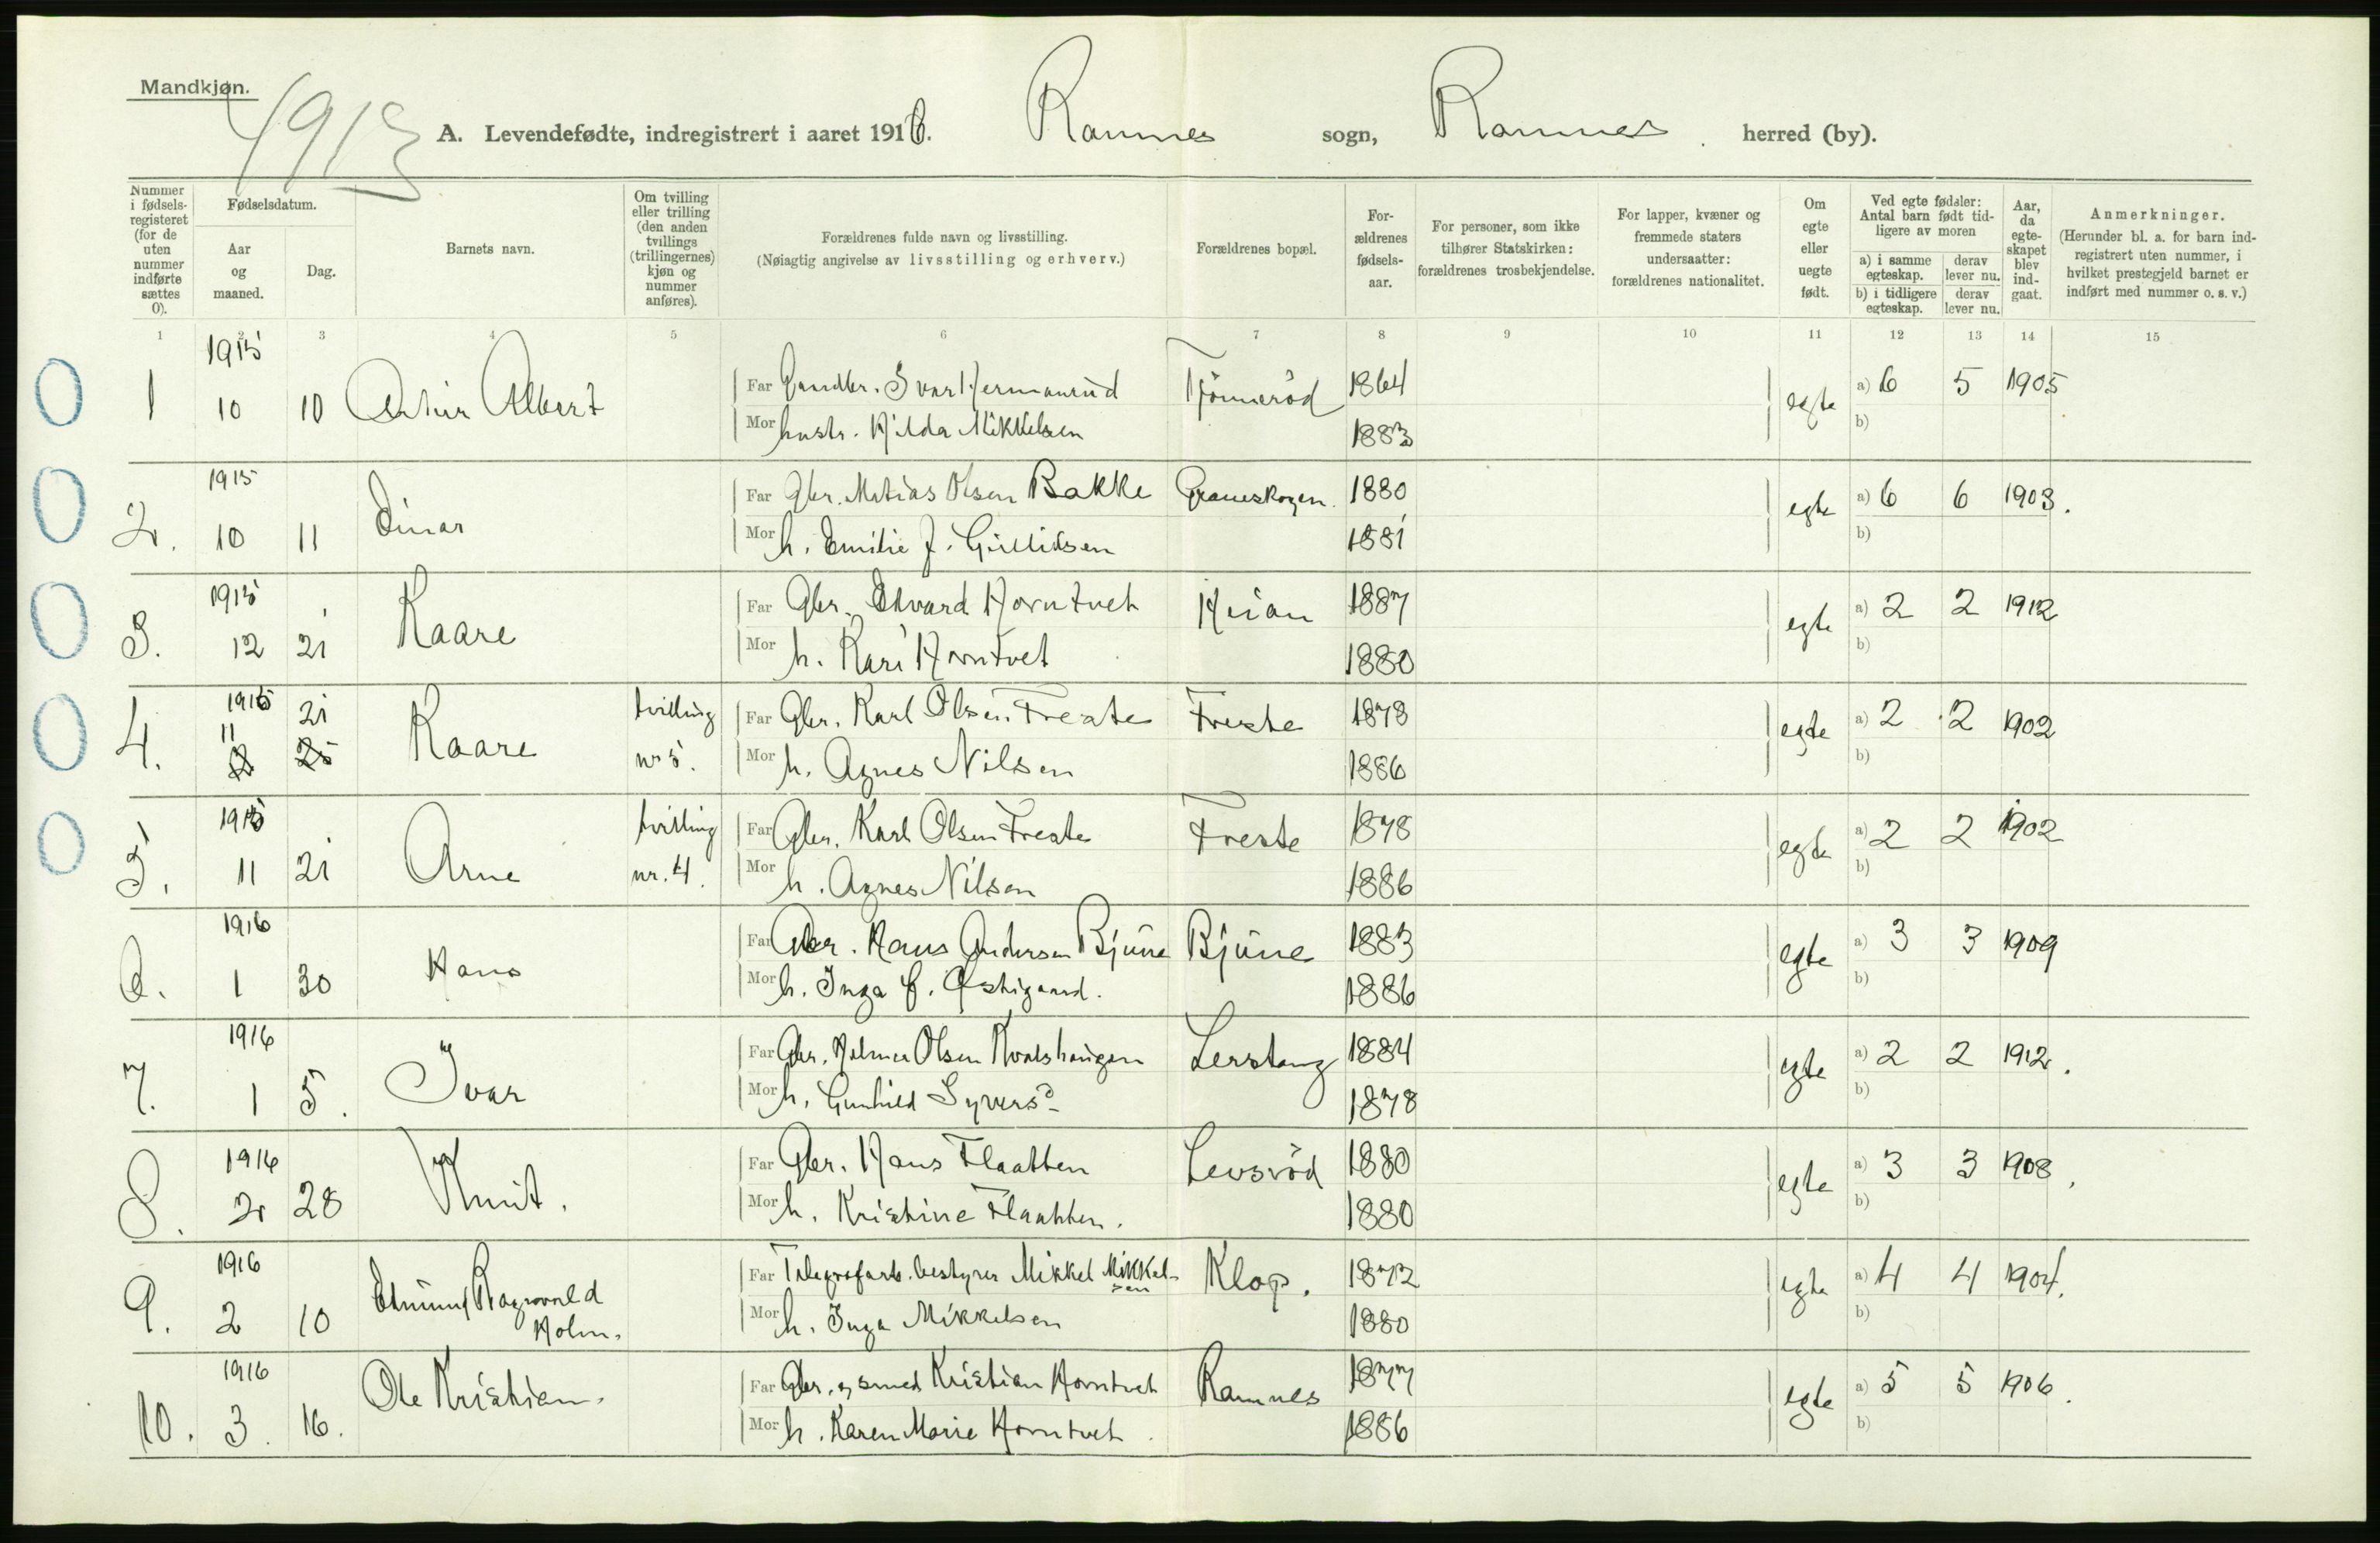 Mandkjøn.
1915
A. Levendefødte, indregistrert i aaret 1916. Ramnes sogn, Ramnes herred (by).
Nummer i fødselsregisteret (for de uten nummer indførte sættes 0).
Fødselsdatum.
Aar og maaned.
Dag.
Barnets navn.
Om tvilling eller trilling (den anden tvillings (trillingernes) kjøn og nummer anføres).
Forældrenes fulde navn og livsstilling.
(Nøiagtig angivelse av livsstilling og erhverv.)
Forældrenes bopæl.
Forældrenes fødselsaar.
For personer, som ikke tilhører Statskirken: forældrenes trosbekjendelse.
For lapper, kvæner og fremmede staters undersaatter: forældrenes nationalitet.
Om egte eller uegte født.
Ved egte fødsler: Antal barn født tidligere av moren
a) i samme egteskap. derav lever nu.
b) i tidligere egteskap. derav lever nu.
Aar, da egteskapet blev indgaat.
Anmerkninger.
(Herunder bl. a. for barn indregistrert uten nummer, i hvilket prestegjeld barnet er indført med nummer o. s. v.)
1 2 3 4 5 6 7 8 9 10 11 12 13 14 15
1915
1 10 10 Albert Far Ivar Hermansrud 1864 egte a) 6 5 1905
Mor hustr. Hilda Mikkelsen 1883 b)
1915
2. 10 11 Einar Far Gbr. Matias Olsen Bakke 1880 egte a) 6 6 1903.
Mor h. Emilie J. Gulliksen 1881 b)
1915
3. 12 21 Kaare Far Gbr. Edvard Horntvet 1887 egte a) 2 2 1912
Mor h. Kari Horntvet 1880 b)
1915
4. 11 21 Kaare tvilling nr 5. Far Gbr. Karl Olsen Freste Freste 1878 egte a) 2 2 1902
12 25
Mor h. Agnes Nilsen 1886 b)
1915
5. 11 21 Arne tvilling nr. 4. Far Gbr. Karl Olsen Freste Freste 1878 egte a) 2 2 1902
Mor h. Agnes Nilsen 1886 b)
1916
6. 1 30 Hans Far Gbr. Hans Andersen Bjune Bjune 1883 egte a) 3 3 1909
Mor h. Inga 1886 b)
1916
7. 1 5. Ivar Far Gbr. Olsen Kvalshaugen Lerstang 1884 egte a) 2 2 1912.
Mor h. Gunhild Syversd 1878 b)
1916
8. 2 28 Knut. Far Gbr. Hans Flaatten Levsrød 1880 egte a) 3 3 1908.
Mor h. Kristine Flaatten. 1880 b)
1916
9. 2 10 Edmund Ragnvald Holm. Far Telegrafarb. bestyrer Mikkel Mikkelsen Klop. 1872 egte a) 4 4 1904.
Mor h. Inga Mikkelsen 1880 b)
1916
10. 3. 16. Ole Kristian. Far Gbr. og smed Kristian Horntvet Ramnes 1877 egte a) 5 5 1906.
Mor h. Karen Marie Horntvet. 1886 b)